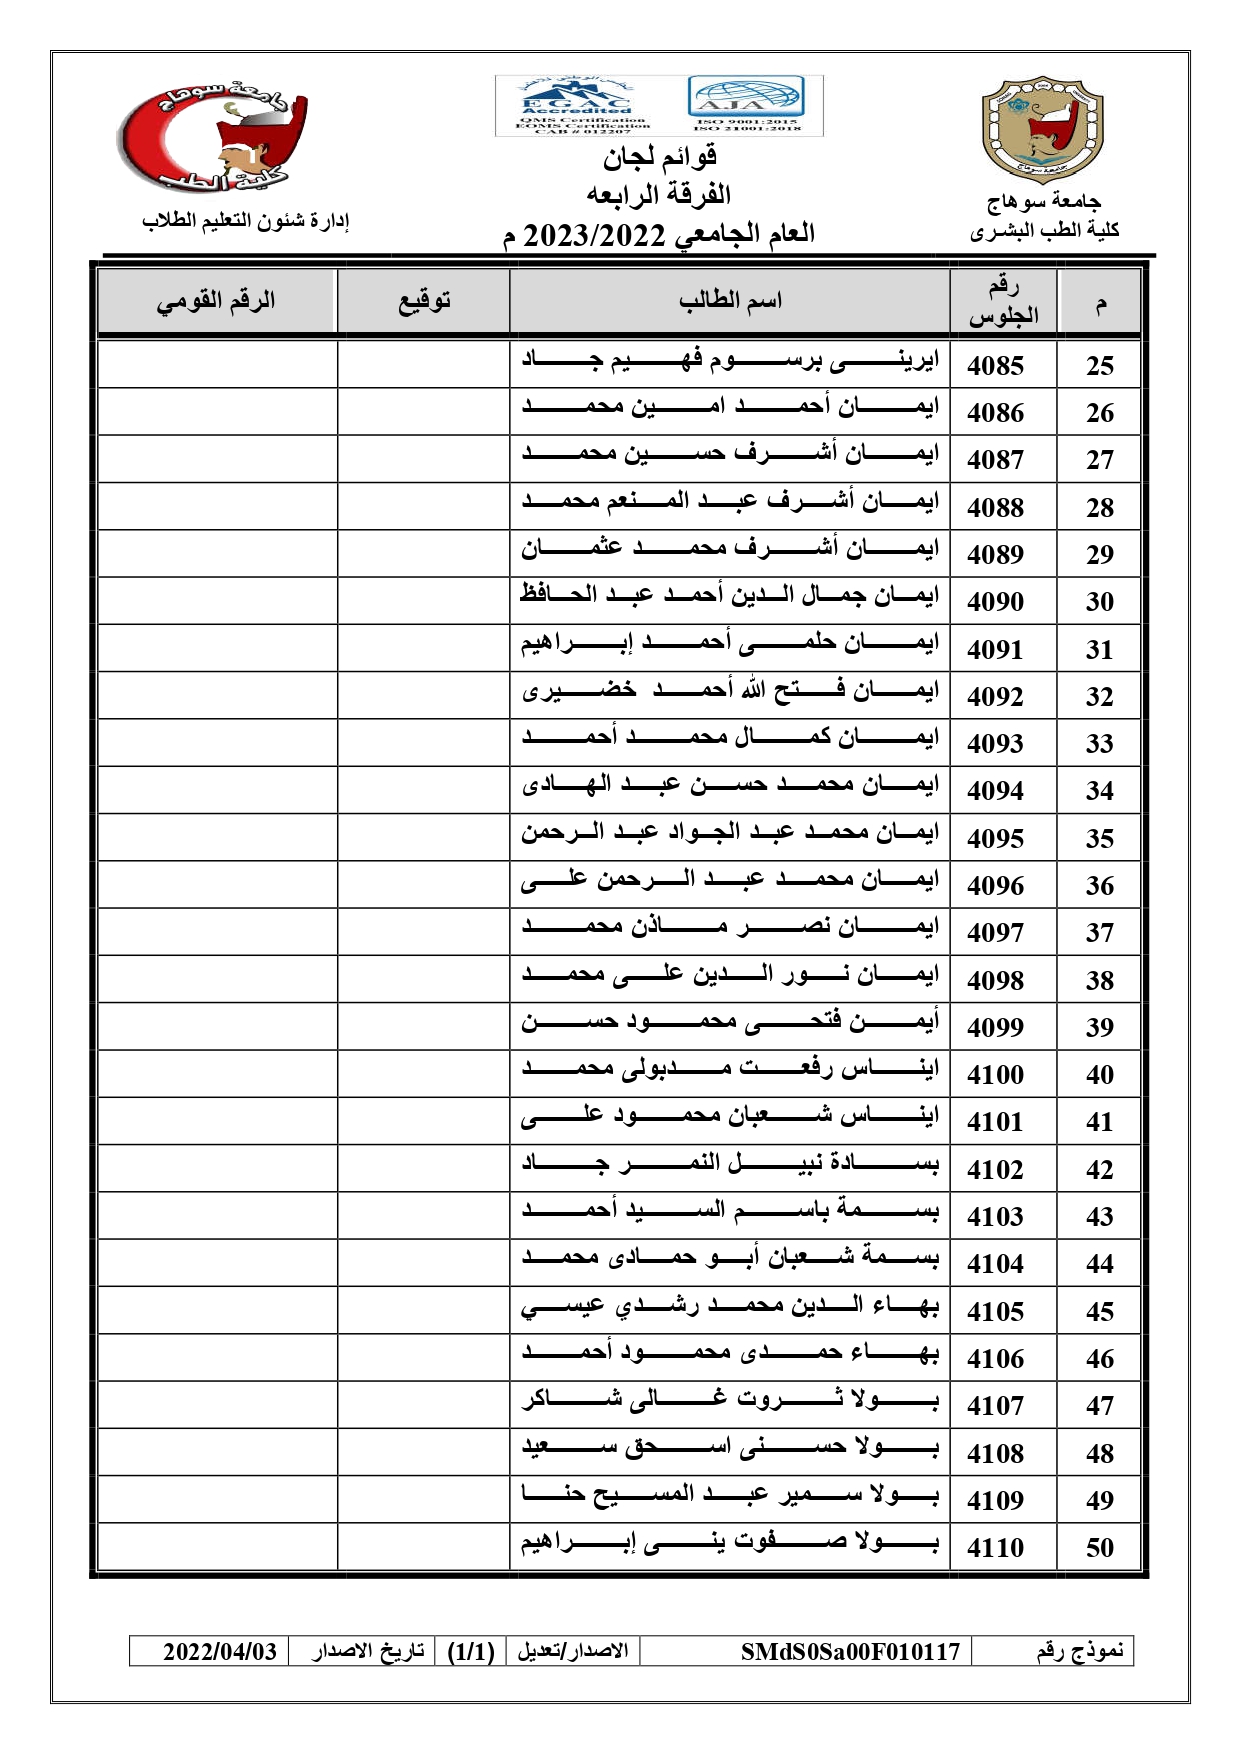 جامعة سوهاج
كلية الطب
EGAC
Accredited
QMS Certification
EOMS Certification
CAB # 012207
AJA
ISO 9001:2015
ISO 21001:2018
جامعة سوهاج
جامعة سوهاج
كلية الطب البشرى
قوائم لجان
الفرقة الرابعه
العام الجامعي 2023/2022 م
إدارة شئون التعليم الطلاب
م رقم الجلوس اسم الطالب توقيع الرقم القومي
25 4085 ايرينى برسوم فهيم جاد
26 4086 ايمان أحمد امين محمد
27 4087 ايمان أشرف حسين محمد
28 4088 ايمان أشرف عبد المنعم محمد
29 4089 ايمان أشرف محمد عثمان
30 4090 ايمان جمال الدين أحمد عبد الحافظ
31 4091 ايمان حلمى أحمد إبراهيم
32 4092 ايمان فتح الله أحمد خضيرى
33 4093 ايمان كمال محمد أحمد
34 4094 ايمان محمد حسن عبد الهادى
35 4095 ايمان محمد عبد الجواد عبد الرحمن
36 4096 ايمان محمد عبد الرحمن على
37 4097 ايمان نصر ماذن محمد
38 4098 ايمان نور الدين على محمد
39 4099 أيمن فتحى محمود حسن
40 4100 ايناس رفعت مدبولى محمد
41 4101 ايناس شعبان محمود على
42 4102 بسادة نبيل النمر جاد
43 4103 بسمة باسم السيد أحمد
44 4104 بسمة شعبان أبو حمادى محمد
45 4105 بهاء الدين محمد رشدي عيسي
46 4106 بهاء حمدى محمود أحمد
47 4107 بولا ثروت غالى شاكر
48 4108 بولا حسنى اسحق سعيد
49 4109 بولا سمير عبد المسيح حنا
50 4110 بولا صفوت ينى إبراهيم
نموذج رقم SMdS0Sa00F010117 الاصدار/تعديل (1/1) تاريخ الاصدار 2022/04/03